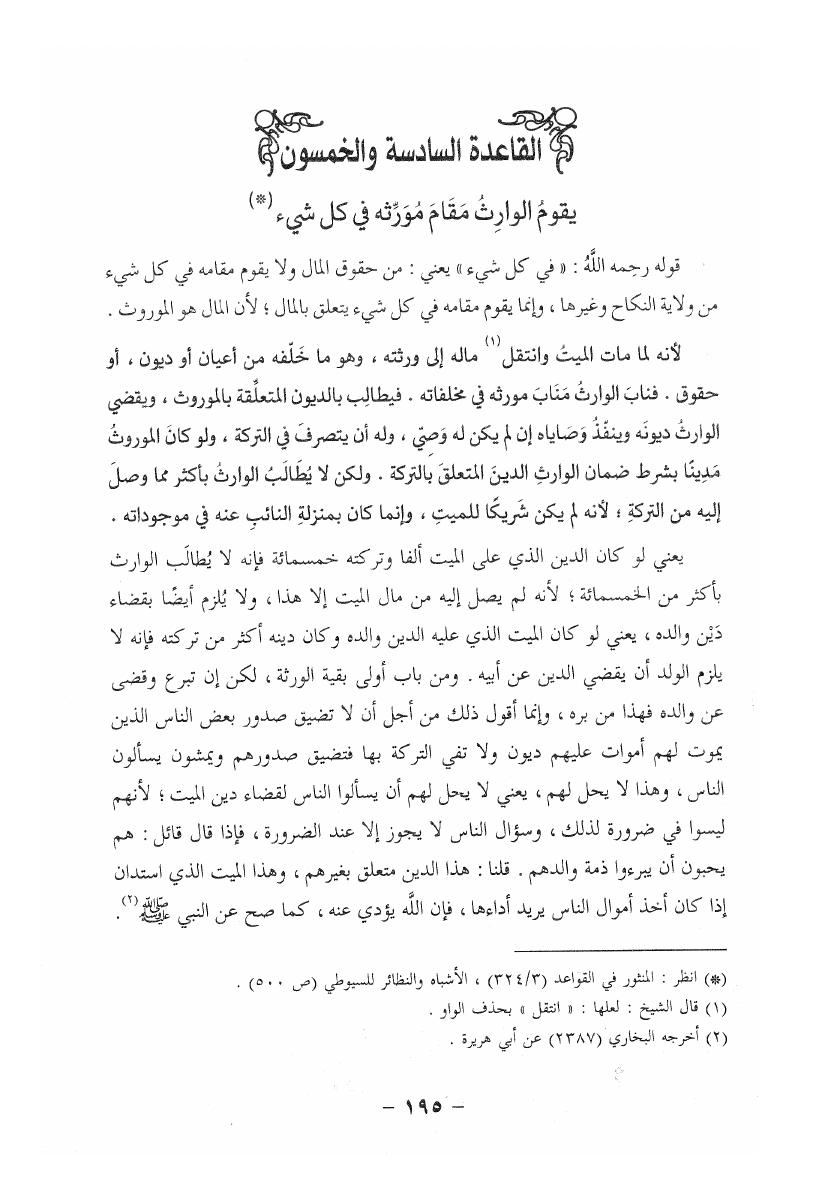 القاعدة السادسة والخمسون
يقومُ الوارِثُ مَقَامَ مُوَرِّثه في كل شيء (*)
قوله رحمه اللَّهُ : « في كل شيء » يعني : من حقوق المال ولا يقوم مقامه في كل شيء
من ولاية النكاح وغيرها ، وإنما يقوم مقامه في كل شيء يتعلق بالمال ؛ لأن المال هو الموروث .
لأنه لما مات الميتُ وانتقل (١) ماله إلى ورثته ، وهو ما خَلّفه من أعيان أو ديون ، أو
حقوق . فنابَ الوارثُ مَنَابَ مورثه في مخلفاته . فيطالِب بالديون المتعلِّقة بالموروث ، ويقضي
الوارثُ ديونَه وينفّذُ وَصَاياه إن لم يكن له وَصِيّ ، وله أن يتصرفَ في التركة ، ولو كانَ الموروثُ
مَدِينًا بشرط ضمان الوارثِ الدينَ المتعلقَ بالتركة . ولكن لا يُطَالَبُ الوارثُ بأكثر مما وصلَ
إليه من التركةِ ؛ لأنه لم يكن شَريكًا للميتِ ، وإنما كان بمنزلةِ النائبِ عنه في موجوداته .
يعني لو كان الدين الذي على الميت ألفا وتركته خمسمائة فإنه لا يُطالَب الوارث
بأكثر من الخمسمائة ؛ لأنه لم يصل إليه من مال الميت إلا هذا ، ولا يُلزم أيضًا بقضاء
دَيْن والده ، يعني لو كان الميت الذي عليه الدين والده وكان دينه أكثر من تركته فإنه لا
يلزم الولد أن يقضي الدين عن أبيه . ومن باب أولى بقية الورثة ، لكن إن تبرع وقضى
عن والده فهذا من بره ، وإنما أقول ذلك من أجل أن لا تضيق صدور بعض الناس الذين
يموت لهم أموات عليهم ديون ولا تفي التركة بها فتضيق صدورهم ويمشون يسألون
الناس ، وهذا لا يحل لهم ، يعني لا يحل لهم أن يسألوا الناس لقضاء دين الميت ؛ لأنهم
ليسوا في ضرورة لذلك ، وسؤال الناس لا يجوز إلا عند الضرورة ، فإذا قال قائل : هم
يحبون أن يبرءوا ذمة والدهم . قلنا : هذا الدين متعلق بغيرهم ، وهذا الميت الذي استدان
إذا كان أخذ أموال الناس يريد أداءها ، فإن اللَّه يؤدي عنه ، كما صح عن النبي ﷺ (٢) .
(*) انظر : المنثور في القواعد (٣/ ٣٢٤) ، الأشباه والنظائر للسيوطي (ص ٥٠٠) .
(١) قال الشيخ : لعلها : « انتقل » بحذف الواو .
(٢) أخرجه البخاري (٢٣٨٧) عن أبي هريرة .
– ١٩٥ –